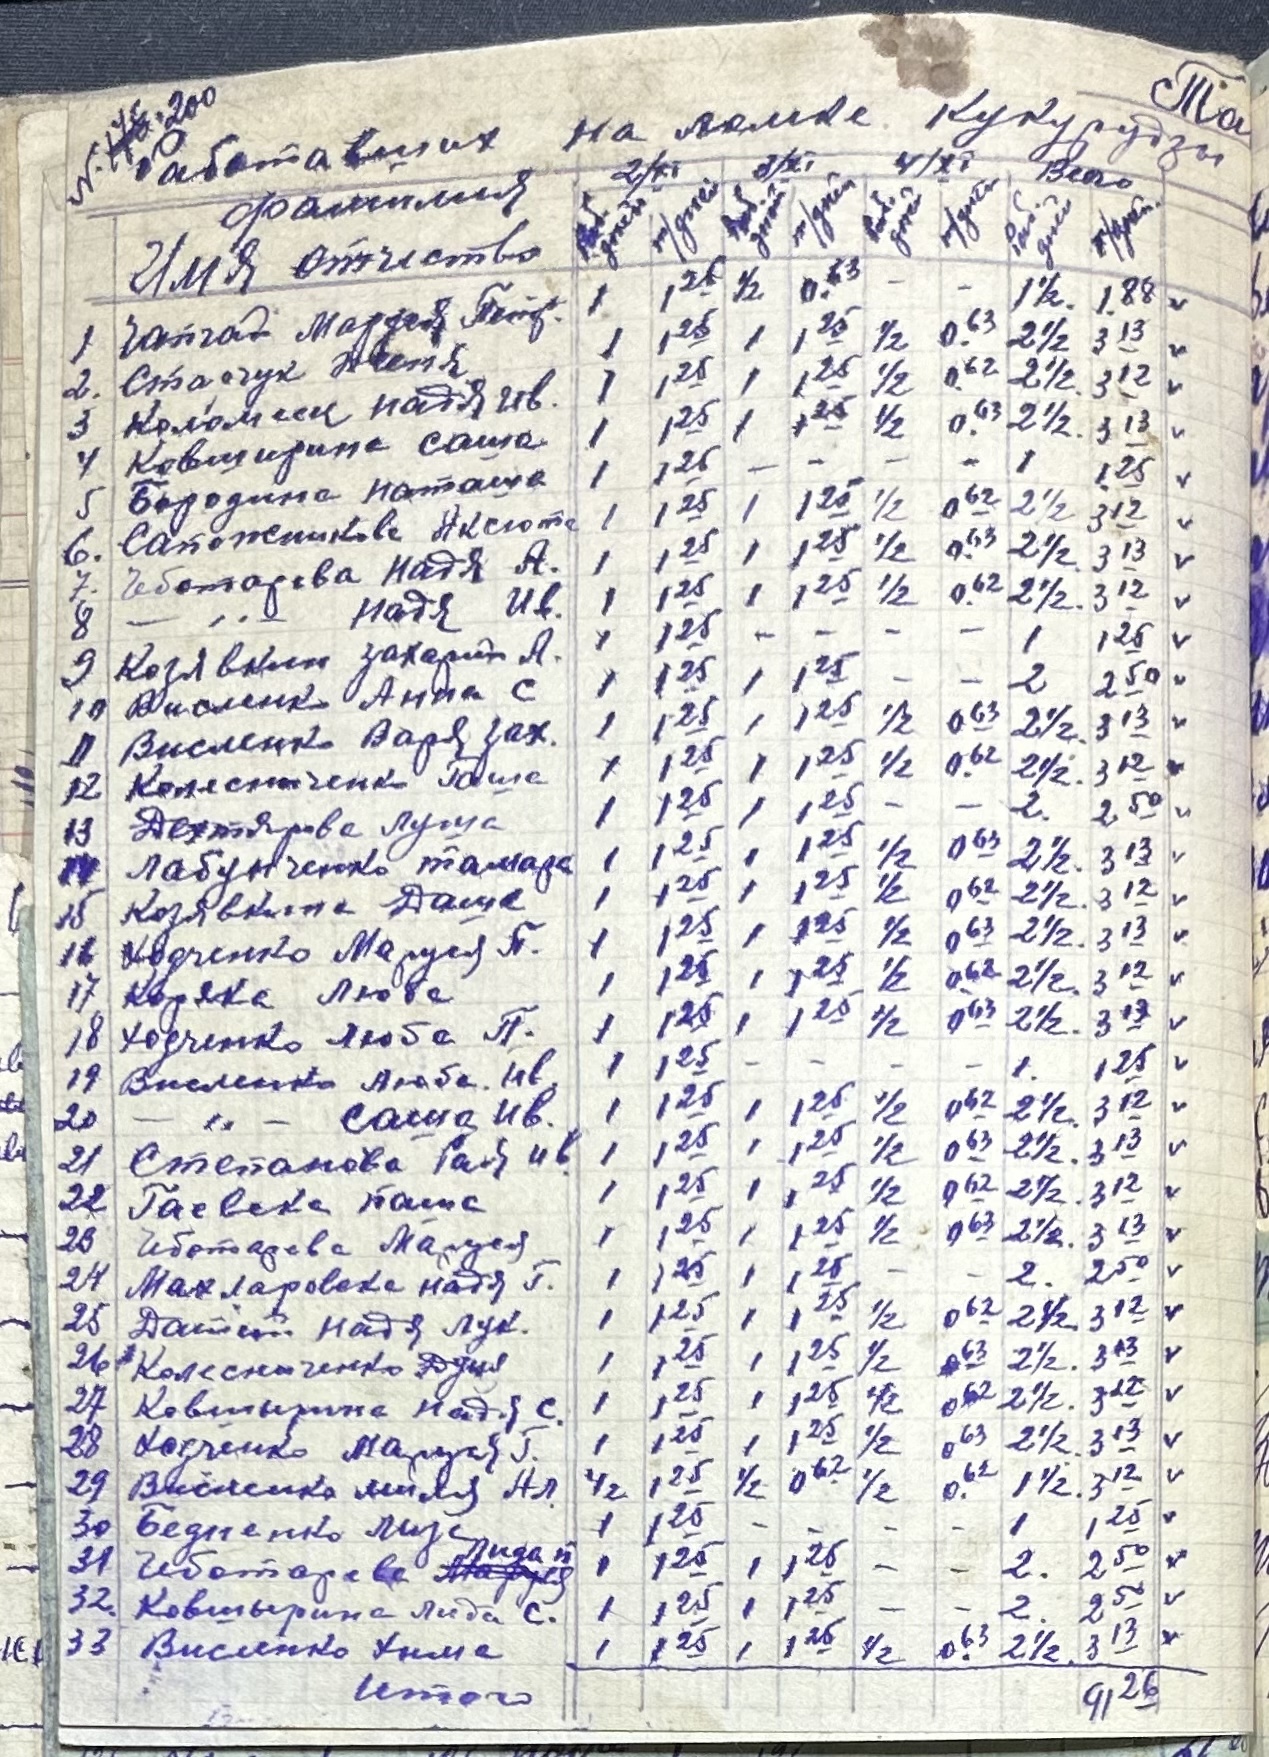 Та
Работавших на ломке Кукурудзы
фамилия 2/XI 3/XI 4/XI Всего
Имя отчество Раб. дней т/дней Раб. дней т/дней Раб. дней т/дней Раб. дней т/дней
1 Маруся Петр. 1 1 25 1/2 0.63 - - 1 1/2. 1.88 v
2. Стасчук Женя 1 1 25 1 1 25 1/2 0.63 2 1/2 3 13 v
3 Коломеец Надя Ив. 1 1 25 1 1 25 1/2 0.62 2 1/2. 3 12 v
4 Ковширина Саша 1 1 25 1 1 25 1/2 0.63 2 1/2. 3 13 v
5 Бородина Наташа 1 1 25 - - - - 1 1 25 v
6. Сапожникова Аксюта 1 1 25 1 1 25 1/2 0 62 2 1/2 3 12 v
7. Чеботарева Надя А. 1 1 25 1 1 25 1/2 0.63 2 1/2. 3 13 v
8 — „ — Надя Ив. 1 1 25 1 1 25 1/2 0.62 2 1/2. 3 12 v
9 Козявкин Захарий А. 1 1 25 - - - - 1 1 25 v
10 Висленко Анна С 1 1 25 1 1 25 - - 2 2 50 v
11 Висленко Варя Зах. 1 1 25 1 1 25 1/2 0 63 2 1/2. 3 13 v
12 Колесниченко Гаша 1 1 25 1 1 25 1/2 0.62 2 1/2. 3 12 v
13 Дехтярова Луша 1 1 25 1 1 25 - - 2. 2 50 v
14 Лабунченко Тамара 1 1 25 1 1 25 1/2 0 63 2 1/2. 3 13 v
15 Козявкина Даша 1 1 25 1 1 25 1/2 0 62 2 1/2. 3 12 v
16 Ходченко Маруся П. 1 1 25 1 1 25 1/2 0 63 2 1/2. 3 13 v
17 Коряка Люба 1 1 25 1 1 25 1/2 0.62 2 1/2. 3 12 v
18 Ходченко Люба П. 1 1 25 1 1 25 1/2 0 63 2 1/2. 3 13 v
19 Висленко Люба. Ив. 1 1 25 - - - - 1. 1 25 v
20 — „ — Саша Ив. 1 1 25 1 1 25 1/2 0 62 2 1/2. 3 12 v
21 Степанова Галя Ив 1 1 25 1 1 25 1/2 0 63 2 1/2. 3 13 v
22 Гаевска Паша 1 1 25 1 1 25 1/2 0 62 2 1/2. 3 12 v
23 Чеботарева Маруся 1 1 25 1 1 25 1/2 0 63 2 1/2. 3 13 v
24 Махларовска Надя Г. 1 1 25 1 1 25 - - 2. 2 50 v
25 Надя Лук. 1 1 25 1 1 25 1/2 0 62 2 1/2. 3 12 v
26 Колесниченко Дуня 1 1 25 1 1 25 1/2 0 63 2 1/2. 3 13 v
27 Ковшырина Надя С. 1 1 25 1 1 25 1/2 0 62 2 1/2. 3 12 v
28 Ходченко Маруся Г. 1 1 25 1 1 25 1/2 0 63 2 1/2. 3 13 v
29 Висленко Миля 1/2 1 25 1/2 0 62 1/2 0.62 1 1/2. 3 12 v
30 Бедненко 1 1 25 - - - - 1 1 25 v
31 Чеботарева Лида П 1 1 25 1 1 25 - - 2. 2 50 v
32. Ковшырина Лида С. 1 1 25 1 1 25 - - 2. 2 50 v
33 Висленко Хима 1 1 25 1 1 25 1/2 0.63 2 1/2. 3 13 v
Итого 91 26